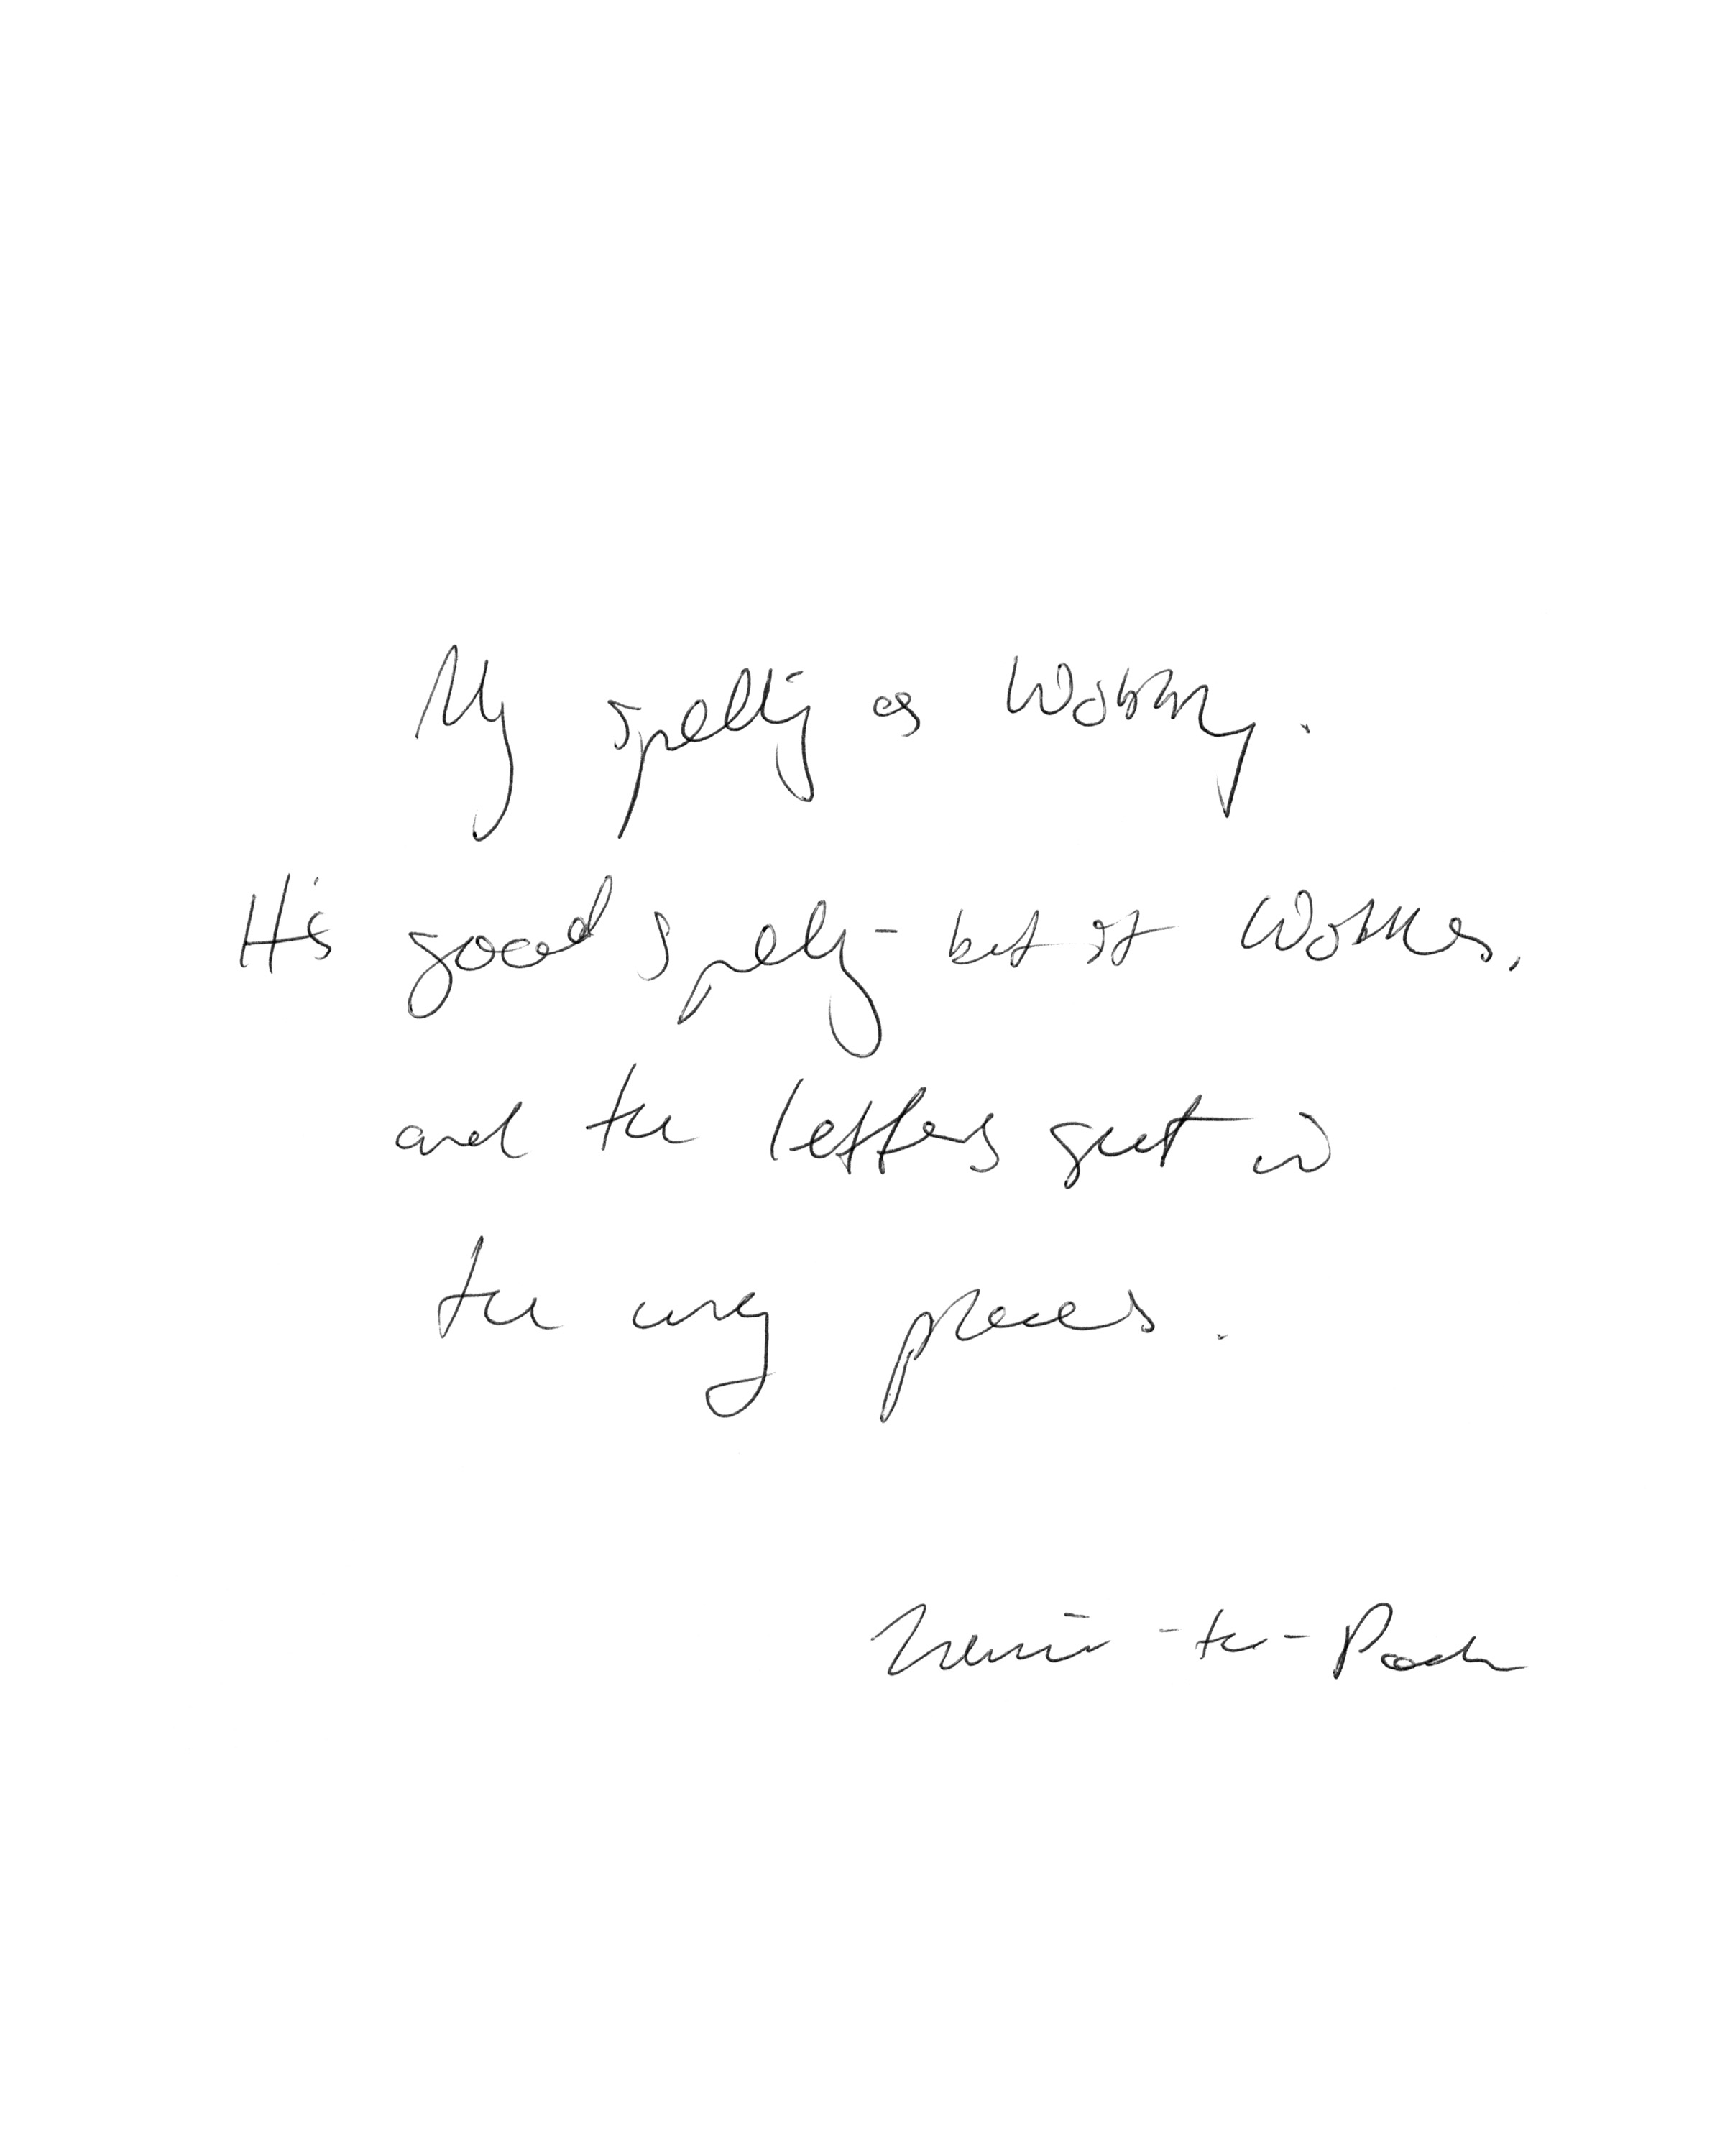 My spelling is Wobbly.
It's good spelling - but it Wobbles,
and the letters get in
the wrong places.
Winnie-the-Pooh